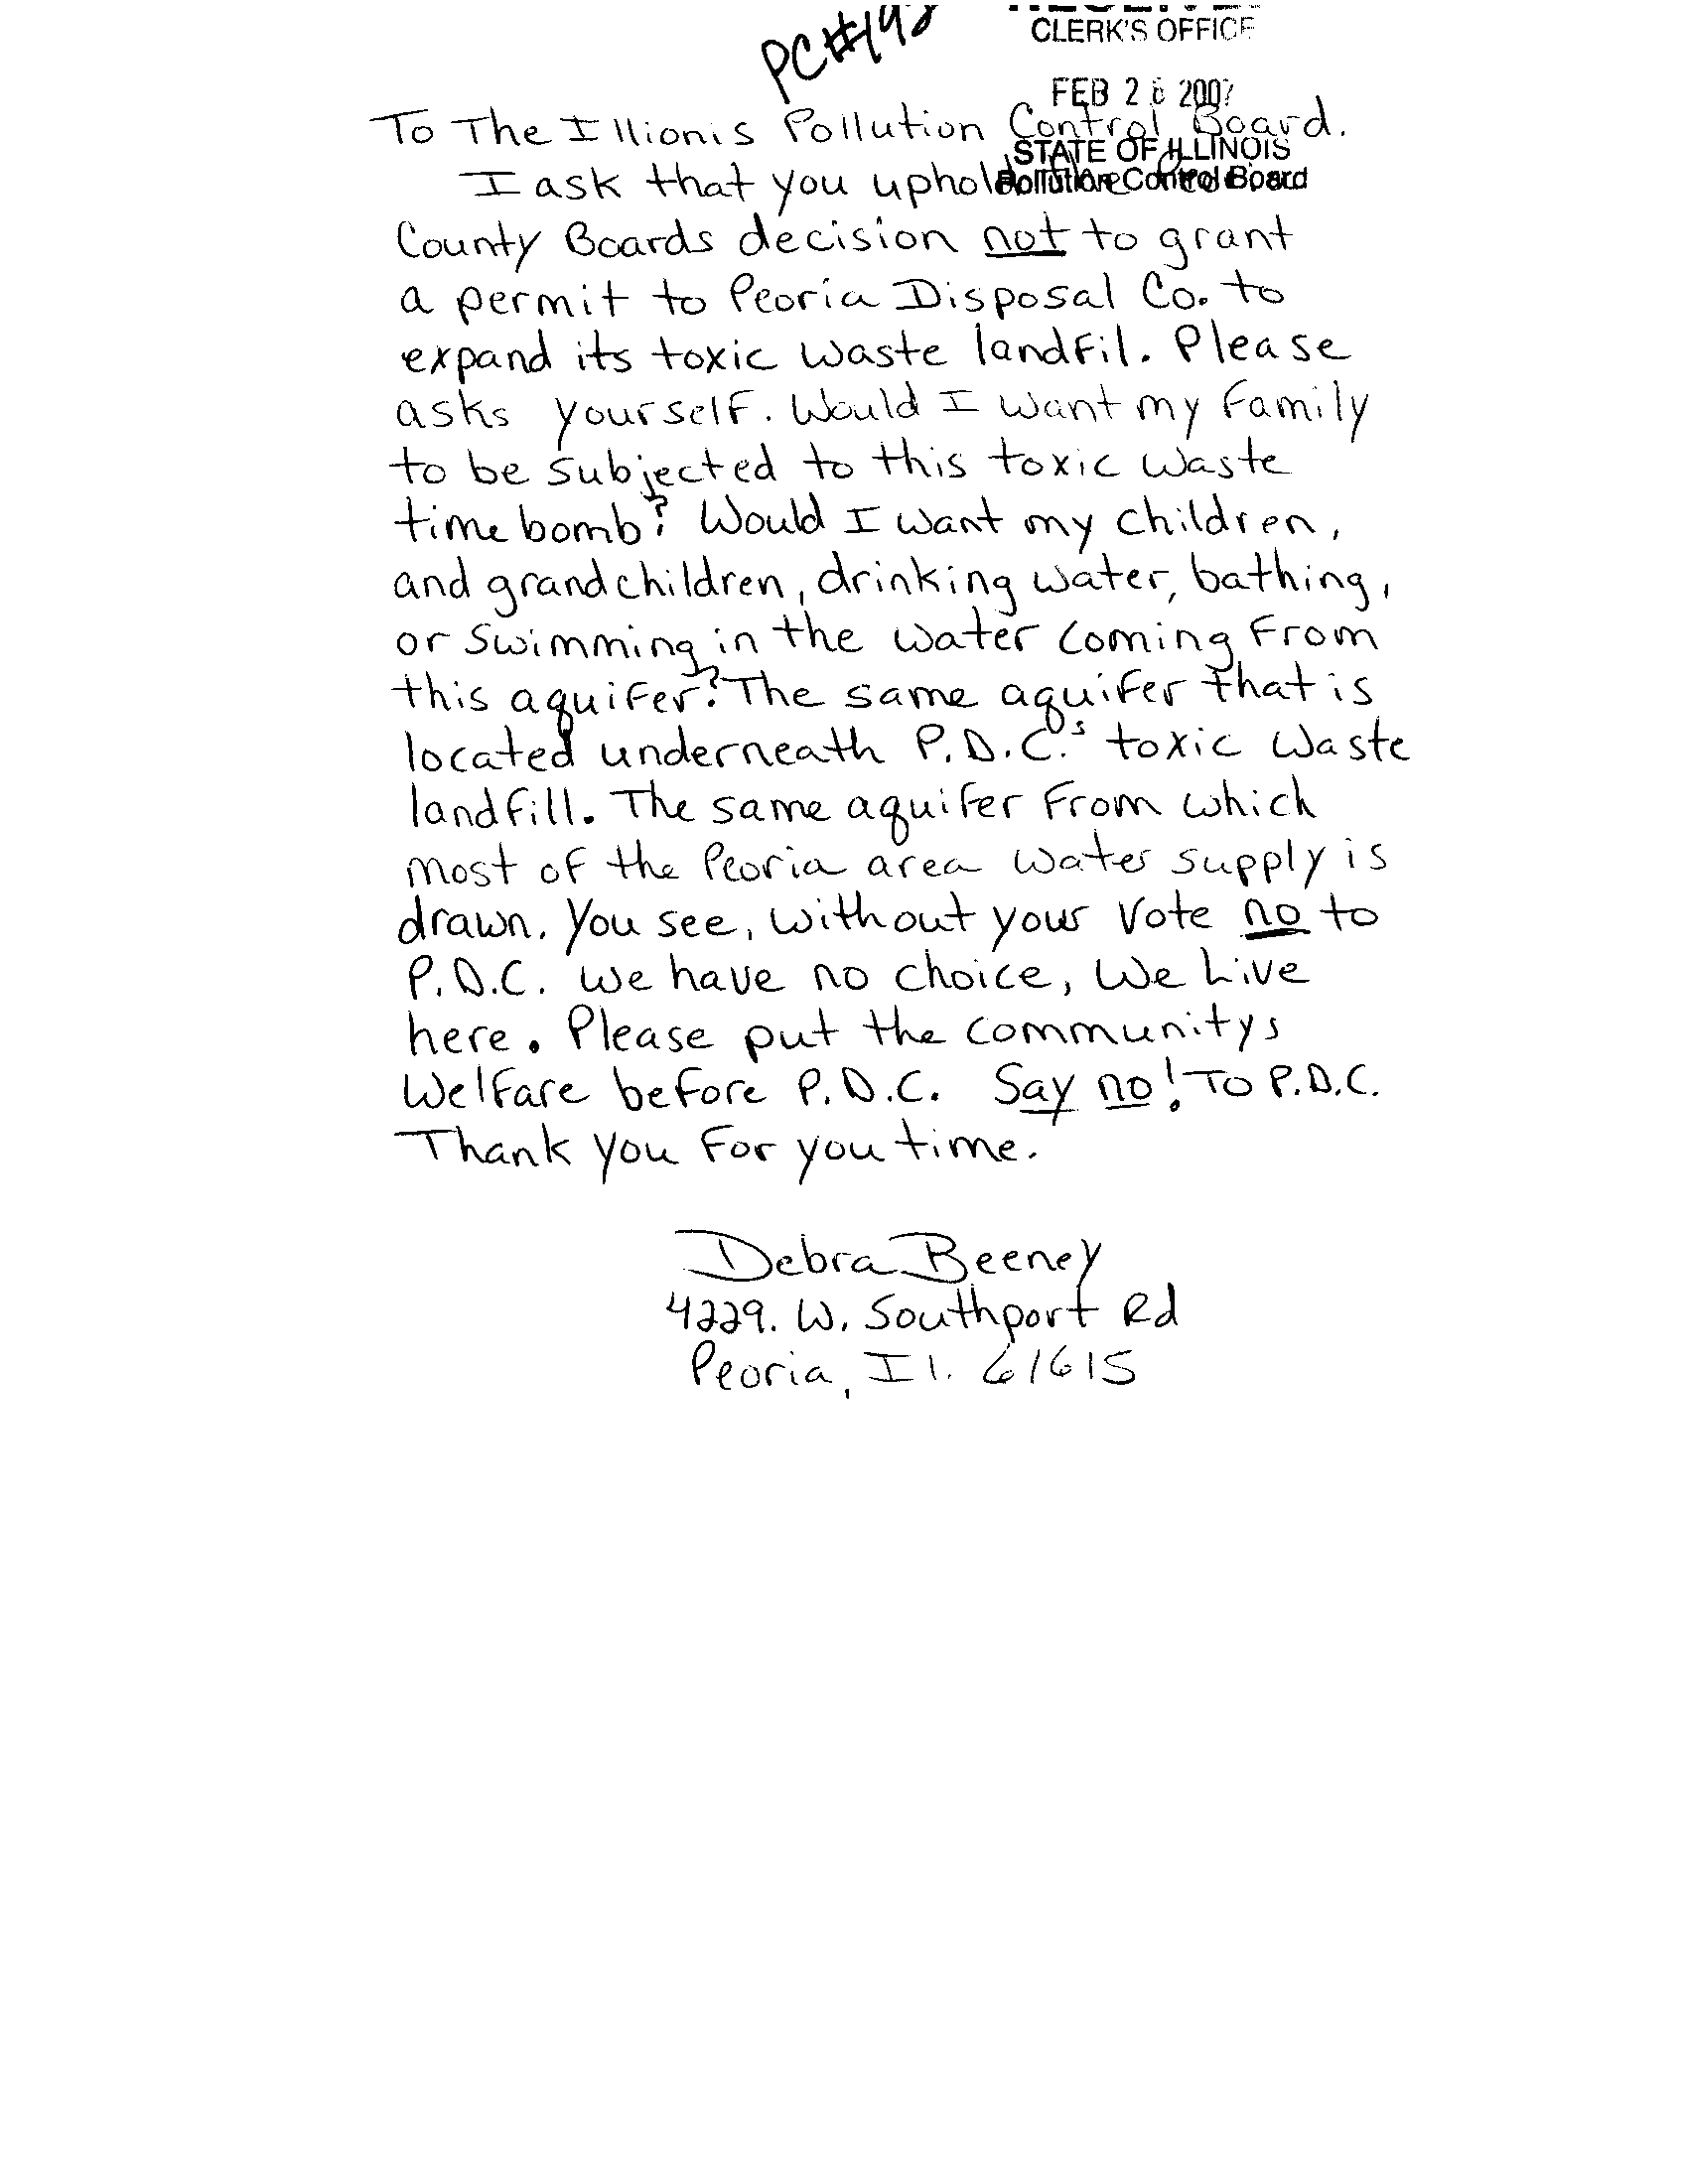 PC#
CLERK'S OFFICE
FEB 2 2007
To The Illionis Pollution Control Board.
STATE OF ILLINOIS
Pollution Control Board
I ask that you uphold the Peoria
County Boards decision not to grant
a permit to Peoria Disposal Co. to
expand its toxic waste landfil. Please
asks yourself. Would I want my family
to be subjected to this toxic waste
time bomb? Would I want my children,
and grandchildren, drinking water, bathing,
or swimming in the water coming from
this aquifer? The same aquifer that is
located underneath P.D.C.'s toxic waste
landfill. The same aquifer from which
most of the Peoria area water supply is
drawn. You see, without your vote no to
P.D.C. we have no choice, we Live
here. Please put the communitys
welfare before P.D.C. Say no! To P.D.C.
Thank you for you time.
Debra Beeney
4229. W. Southport Rd
Peoria, Il. 61615